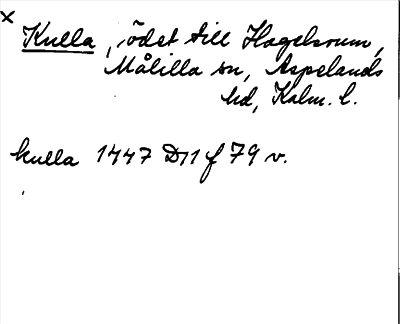 x
Kulla, ödet till Hagelsrum,
Målilla sn, Aspelands
hd, Kalm. l.
kulla 1447 D11 f 79 v.